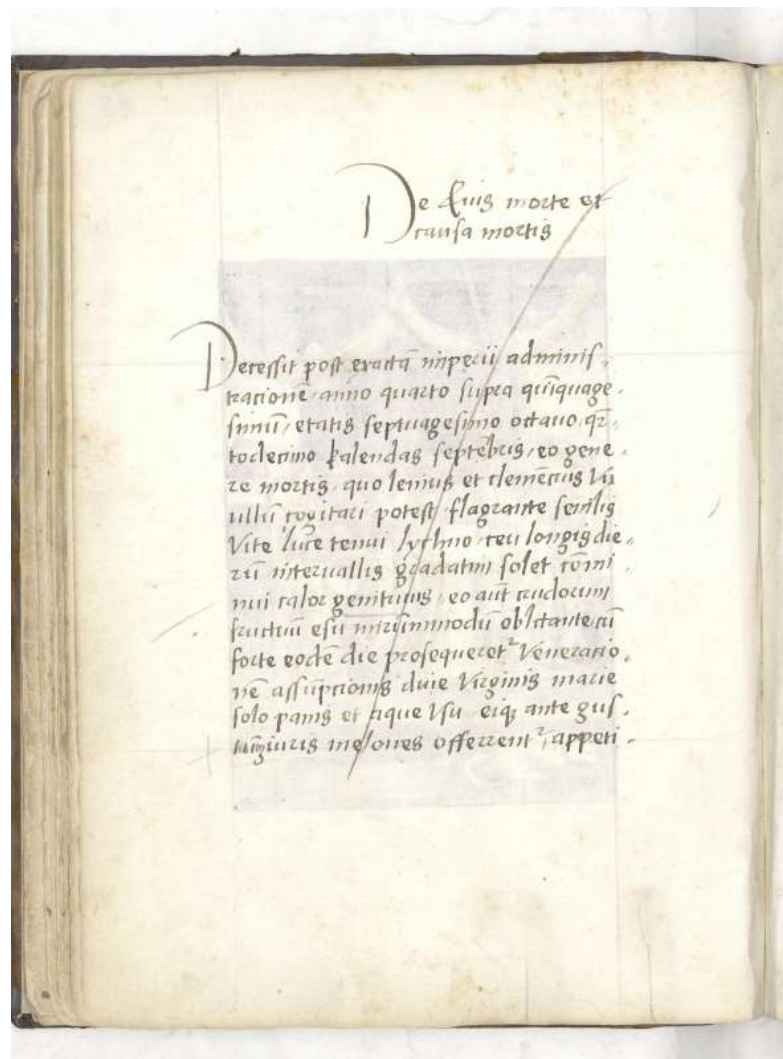 De Eius morte et
causa mortis
Decessit post exactā imperii adminis-
tracionē anno quarto supra quīquage-
simū, etatis septuagesimo octauo, qr̄-
todecimo kalendas septēbris, eo gene-
re mortis, quo lenius et clemēcius Vix
ullū cogitari potest, flagrante senilis
Vite luce tenui lychno, ceu longis die-
rū interuallis gradatim solet cōmi-
nui calor genituus, eo aūt crudorum
fructuū esu mirūmmodū oblctante, cū
forte eodē die prosequeret² Veneracio-
nē assūpcionis diuie Virginis marie
solo panis et aque Vsu eiqꝫ ante gus-
melones offerrent², appeti-